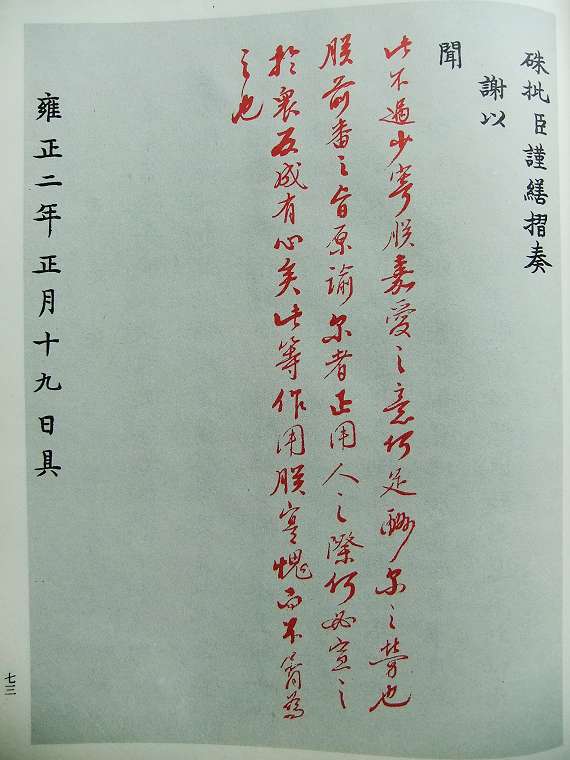 硃批臣謹繕摺奏
謝以
聞
此不過少寄朕嘉愛之意何足酬尔之勞也
朕前番之旨原諭尔者正用人之際何必宣之
於衆反成有心矣此等作用朕寔愧而不肯為
之也
雍正二年正月十九日具
七三